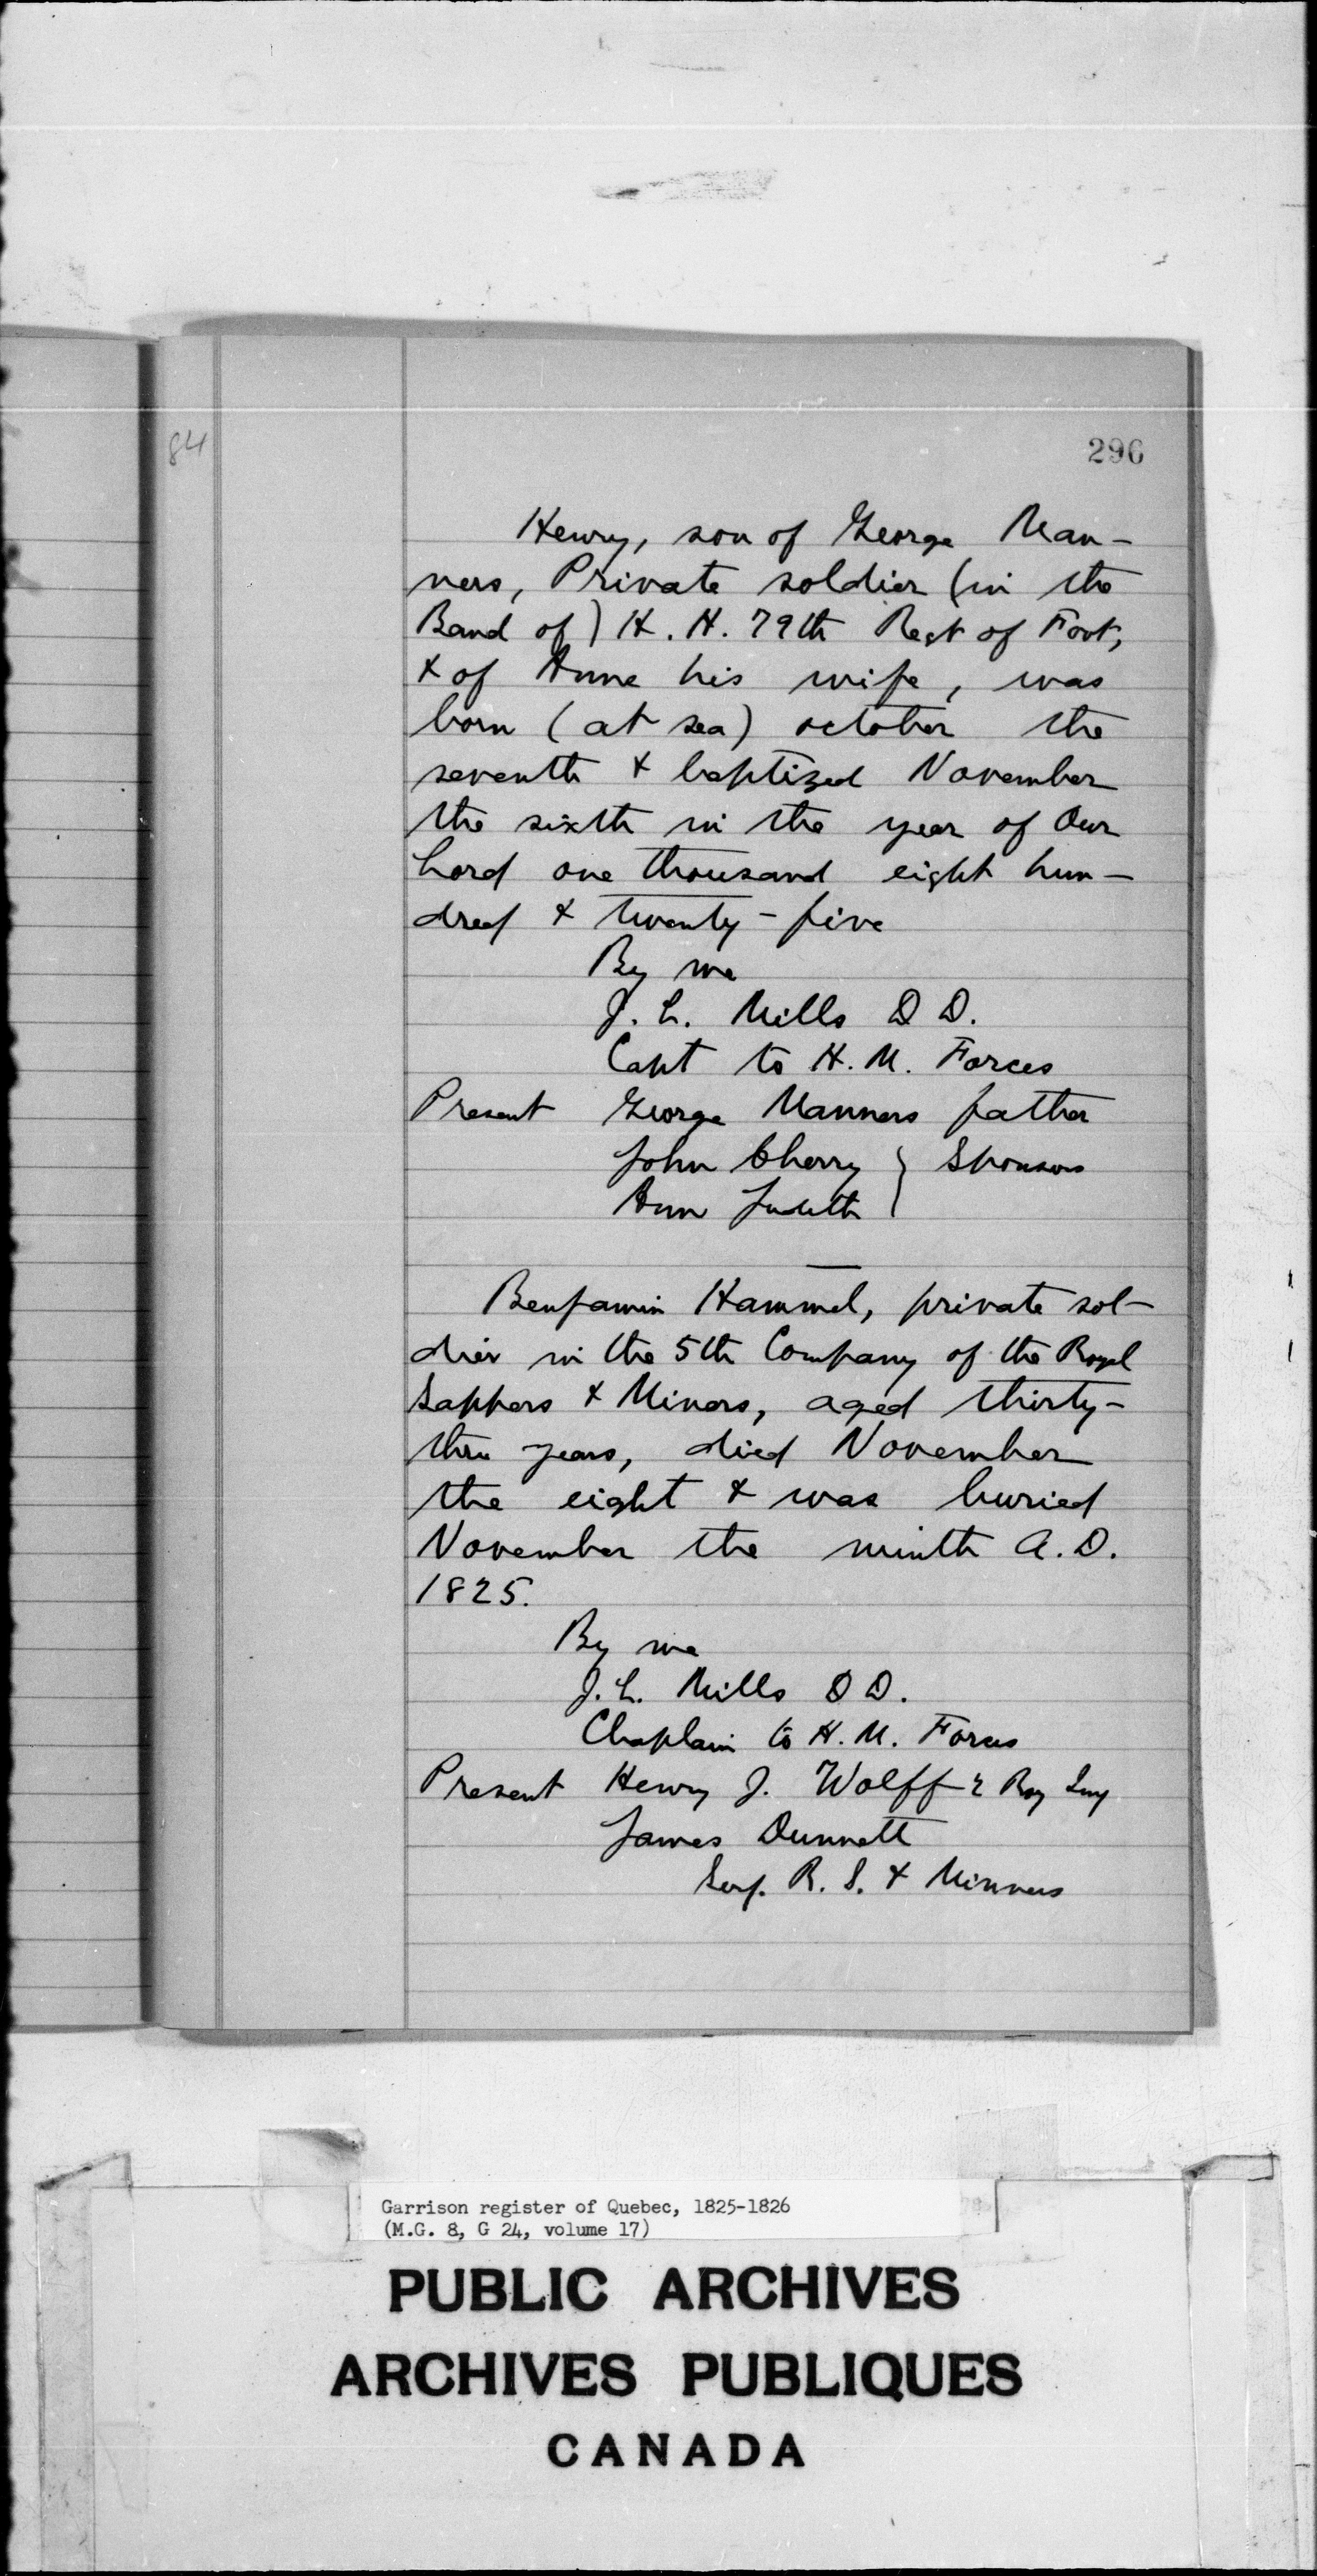 84
296
Henry, son of George Man-
ners, Private soldier (in the
Band of) H. H. 79th Regt of Foot,
& of Anne his wife, was
born (at sea) october the
seventh & baptized November
the sixth in the year of Our
Lord one thousand eight hun-
dred & twenty-five
By me
J. L. Mills D D.
Capt to H. M. Forces
Present George Manners father
John Cherry } Sponsors
Ann Judith
Benjamin Hammel, private sol-
dier in the 5th Company of the Royal
Sappers & Miners, aged thirty-
three years, died November
the eight & was buried
November the ninth A.D.
1825.
By me
J. L. Mills D D.
Chaplain to H. M. Forces
Present Henry J. Wolff Roy
James Dunnett
R. S. & Minners
Garrison register of Quebec, 1825-1826
(M.G. 8, G 24, volume 17)
PUBLIC ARCHIVES
ARCHIVES PUBLIQUES
CANADA